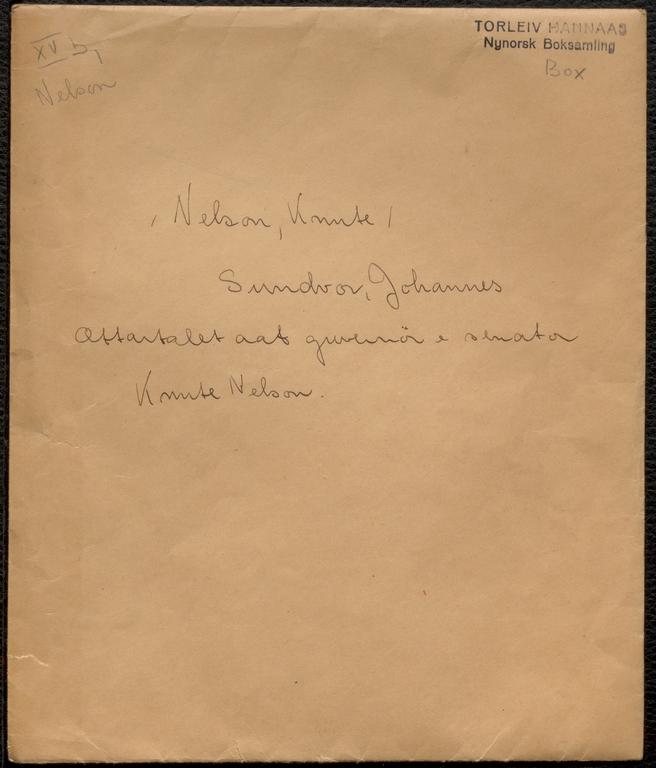 XV b,
Nelson
TORLEIV HANNAAS
Nynorsk Boksamling
Box
/ Nelson, Knute /
Sundvor, Johannes
Ættartalet aat guvernör e senator
Knute Nelson.